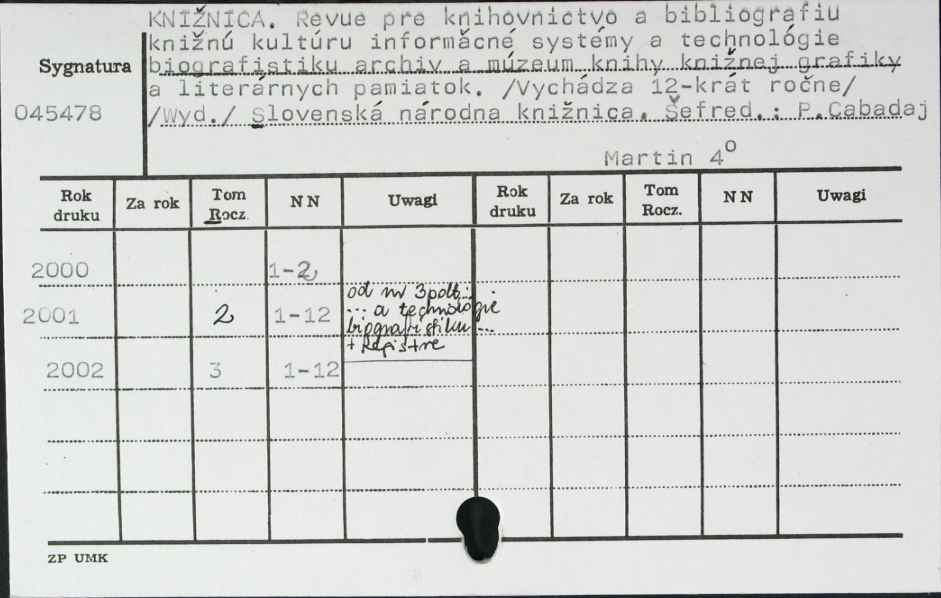 KNIŽNICA. Revue pre knihovnictvo a bibliografiu
knižnú kultúru informačné systémy a technológie
Sygnatura biografistiku archiv a múzeum knihy knižnej grafiky
a literárnych pamiatok. /Vychádza 12-krát ročne/
045478 /Wyd./ Slovenská národna knižnica. Šefred.: P.Cabadaj
Martin 4º
Rok druku Za rok Tom Rocz. NN Uwagi Rok druku Za rok Tom Rocz. NN Uwagi
2000 1-2
od nr 3 podt...
2001 2 1-12 ... a technologie
biografistiku ...
+ Registre
2002 3 1-12
ZP UMK